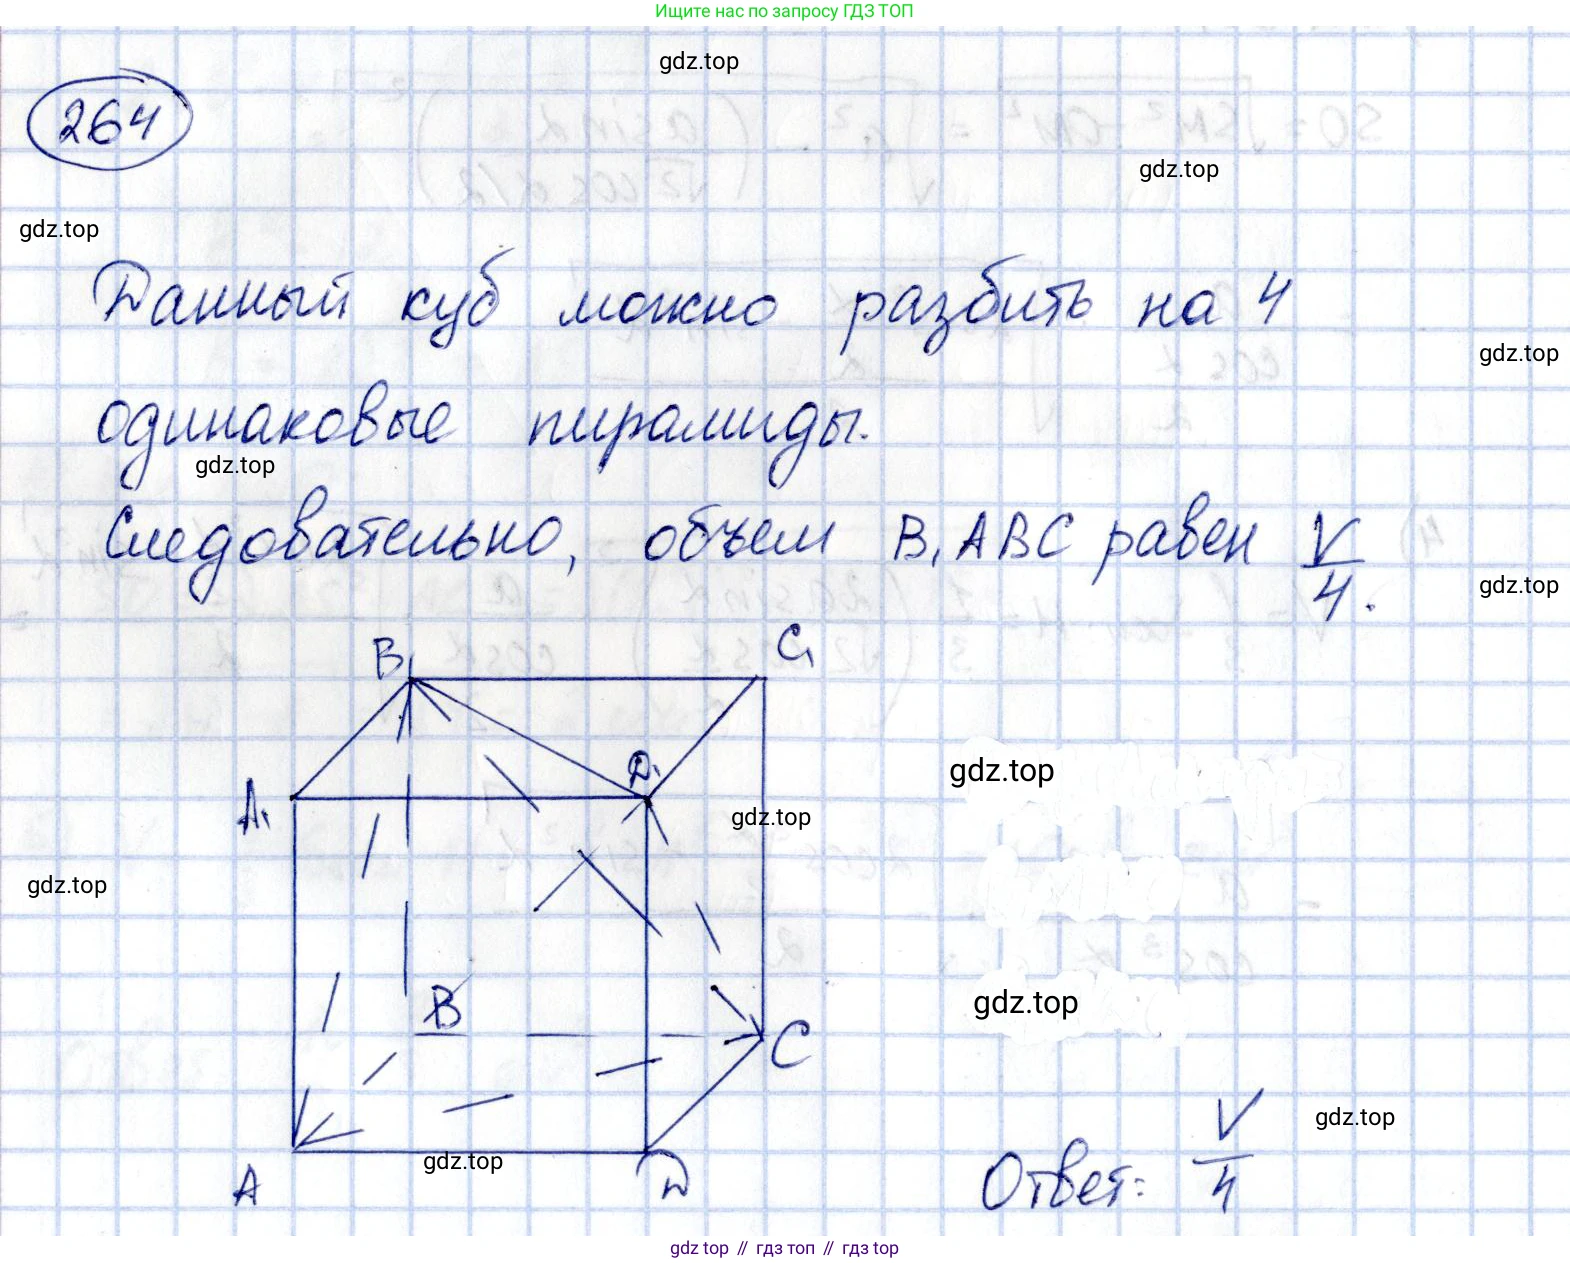 Ищите нас по запросу ГДЗ ТОП
gdz.top
264
gdz.top
gdz.top
Данный куб можно разбить на 4
gdz.top
одинаковые пирамиды.
gdz.top
Следовательно, объем B₁ABC равен V/4.
gdz.top
B₁
C₁
D₁
gdz.top
A₁
gdz.top
gdz.top
B
gdz.top
C
gdz.top
gdz.top
A
D
Ответ: V/4
gdz top // гдз топ // гдз top